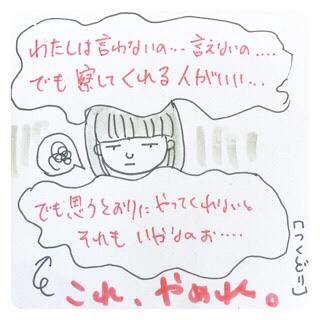 わたしは言わないの…言えないの….
でも察してくれる人がいい…
でも思うとおりにやってくれないと
それもいやなのお…..
[つくぶう]
これ、やめれ。